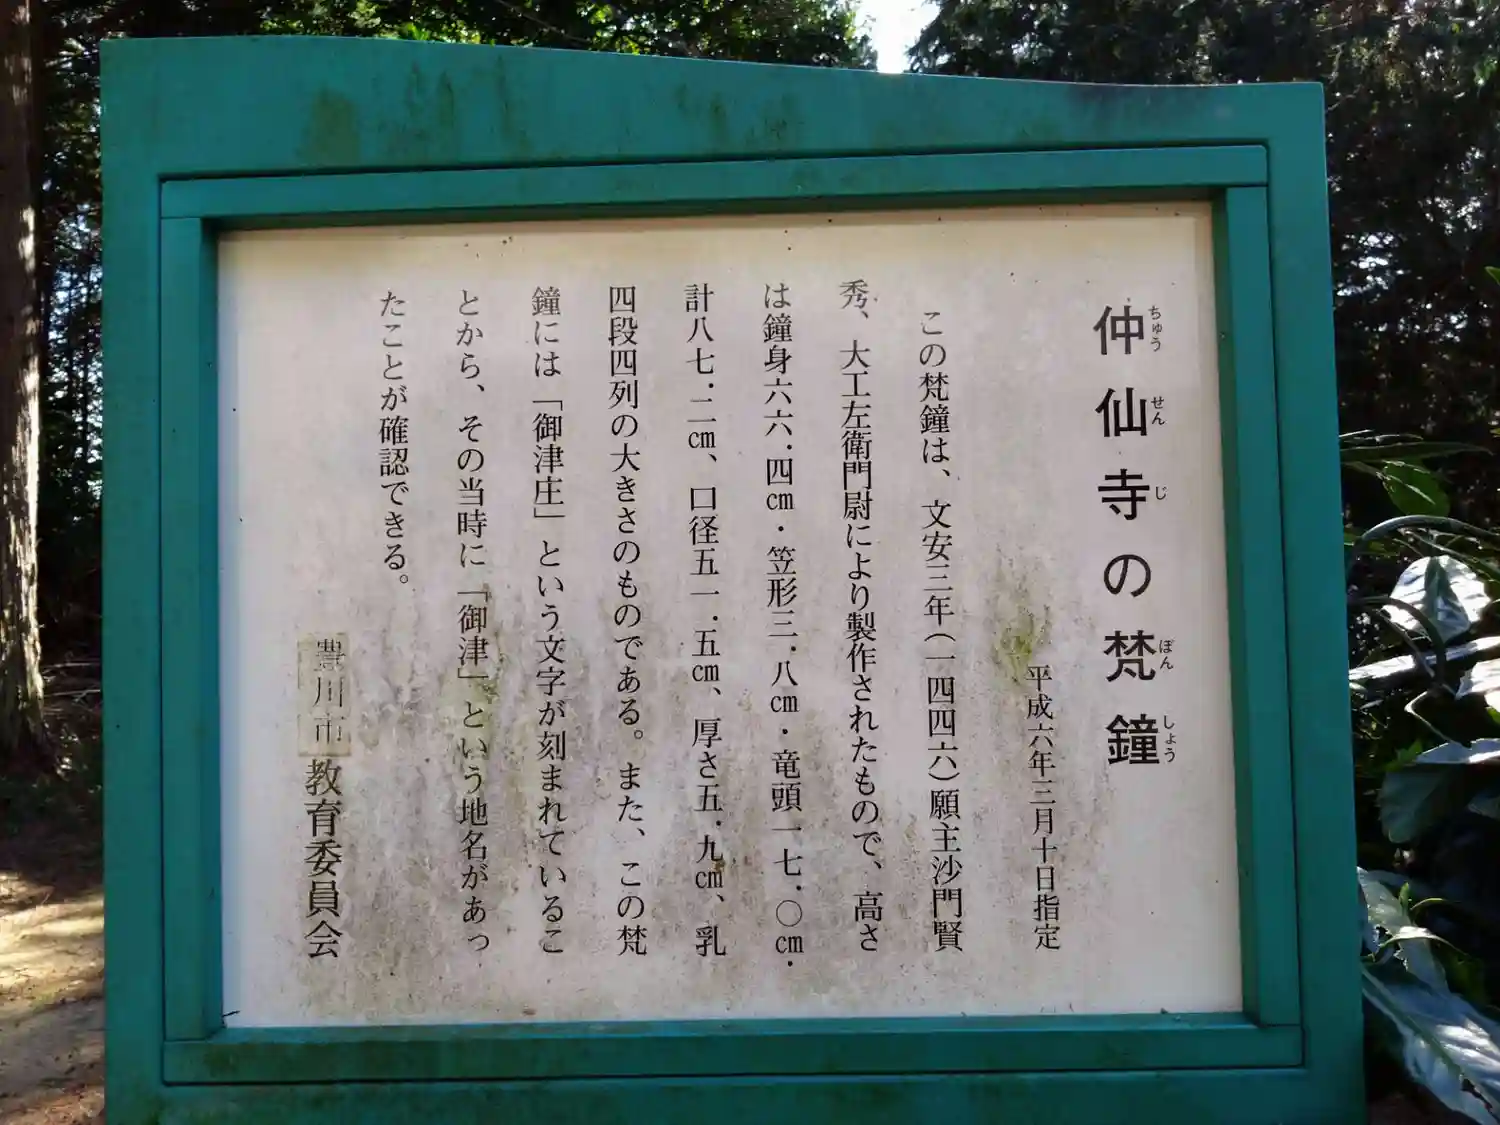 仲仙寺の梵鐘
ちゅうせんじ ぼんしょう
平成六年三月十日指定
この梵鐘は、文安三年（一四四六）願主沙門賢
秀、大工左衛門尉により製作されたもので、高さ
は鐘身六六．四㎝・笠形三．八㎝・竜頭一七．〇㎝・
計八七．二㎝、口径五一．五㎝、厚さ五．九㎝、乳
四段四列の大きさのものである。また、この梵
鐘には「御津庄」という文字が刻まれているこ
とから、その当時に「御津」という地名があっ
たことが確認できる。
豊川市教育委員会